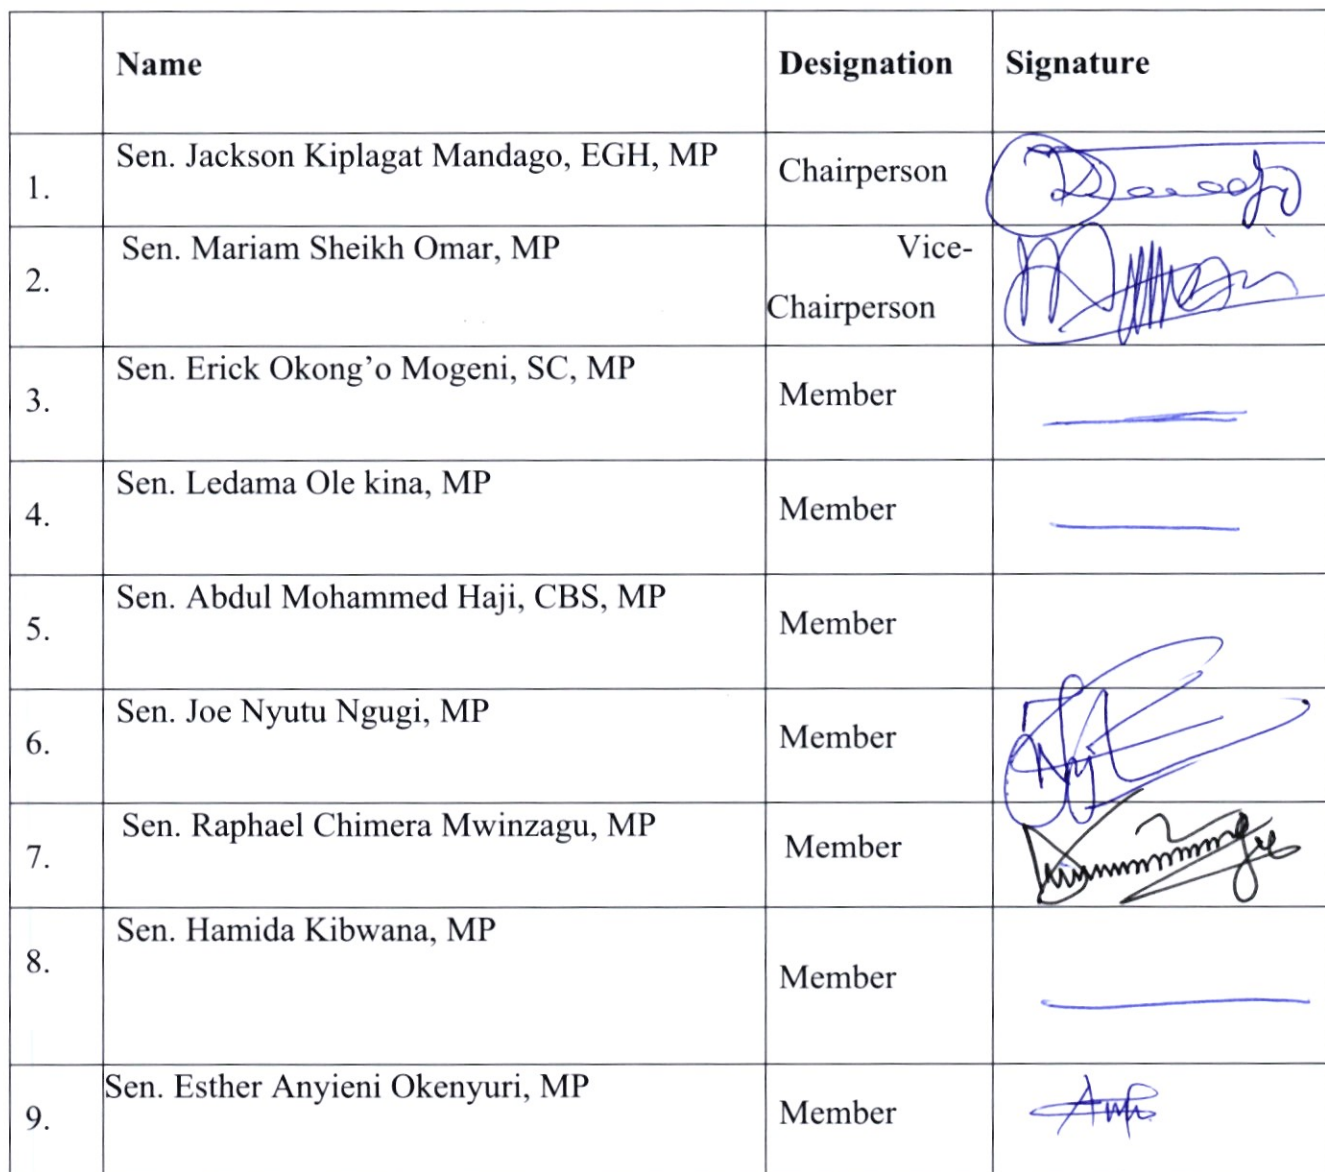 Name Designation Signature
1. Sen. Jackson Kiplagat Mandago, EGH, MP Chairperson
2. Sen. Mariam Sheikh Omar, MP Vice-
Chairperson
3. Sen. Erick Okong’o Mogeni, SC, MP Member
4. Sen. Ledama Ole kina, MP Member
5. Sen. Abdul Mohammed Haji, CBS, MP Member
6. Sen. Joe Nyutu Ngugi, MP Member
7. Sen. Raphael Chimera Mwinzagu, MP Member
8. Sen. Hamida Kibwana, MP Member
9. Sen. Esther Anyieni Okenyuri, MP Member